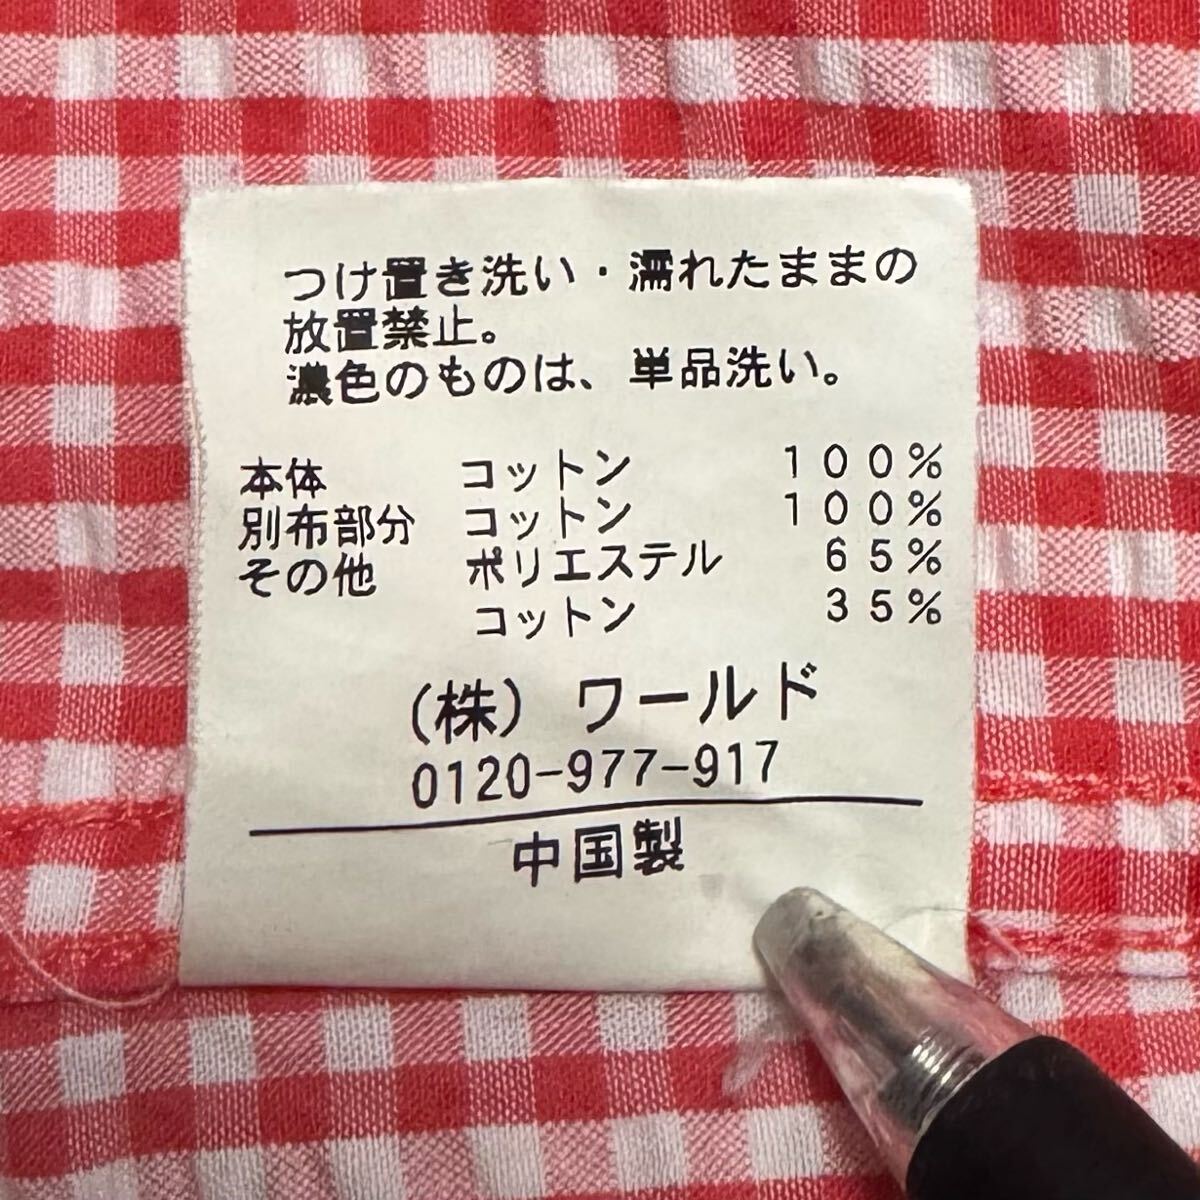 つけ置き洗い・濡れたままの
放置禁止。
濃色のものは、単品洗い。
本体 コットン 100%
別布部分 コットン 100%
その他 ポリエステル 65%
コットン 35%
(株) ワールド
0120-977-917
中国製